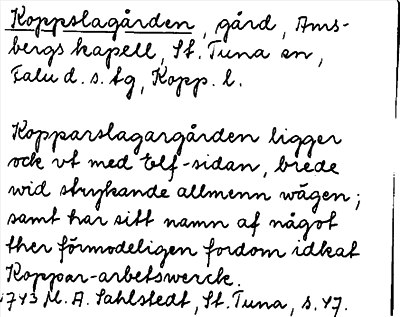 Kopparslagården, gård, Ams-
bergs kapell, St. Tuna sn,
Falu d. s. tg, Kopp. l.
Kopparslagargården ligger
ock vt med Elf-sidan, brede
wid strykande allmenn wägen;
samt har sitt namn af något
ther förmodeligen fordom idkat
Koppar-arbetswerck.
1743 M. A. Sahlstedt, St. Tuna, s. 47.